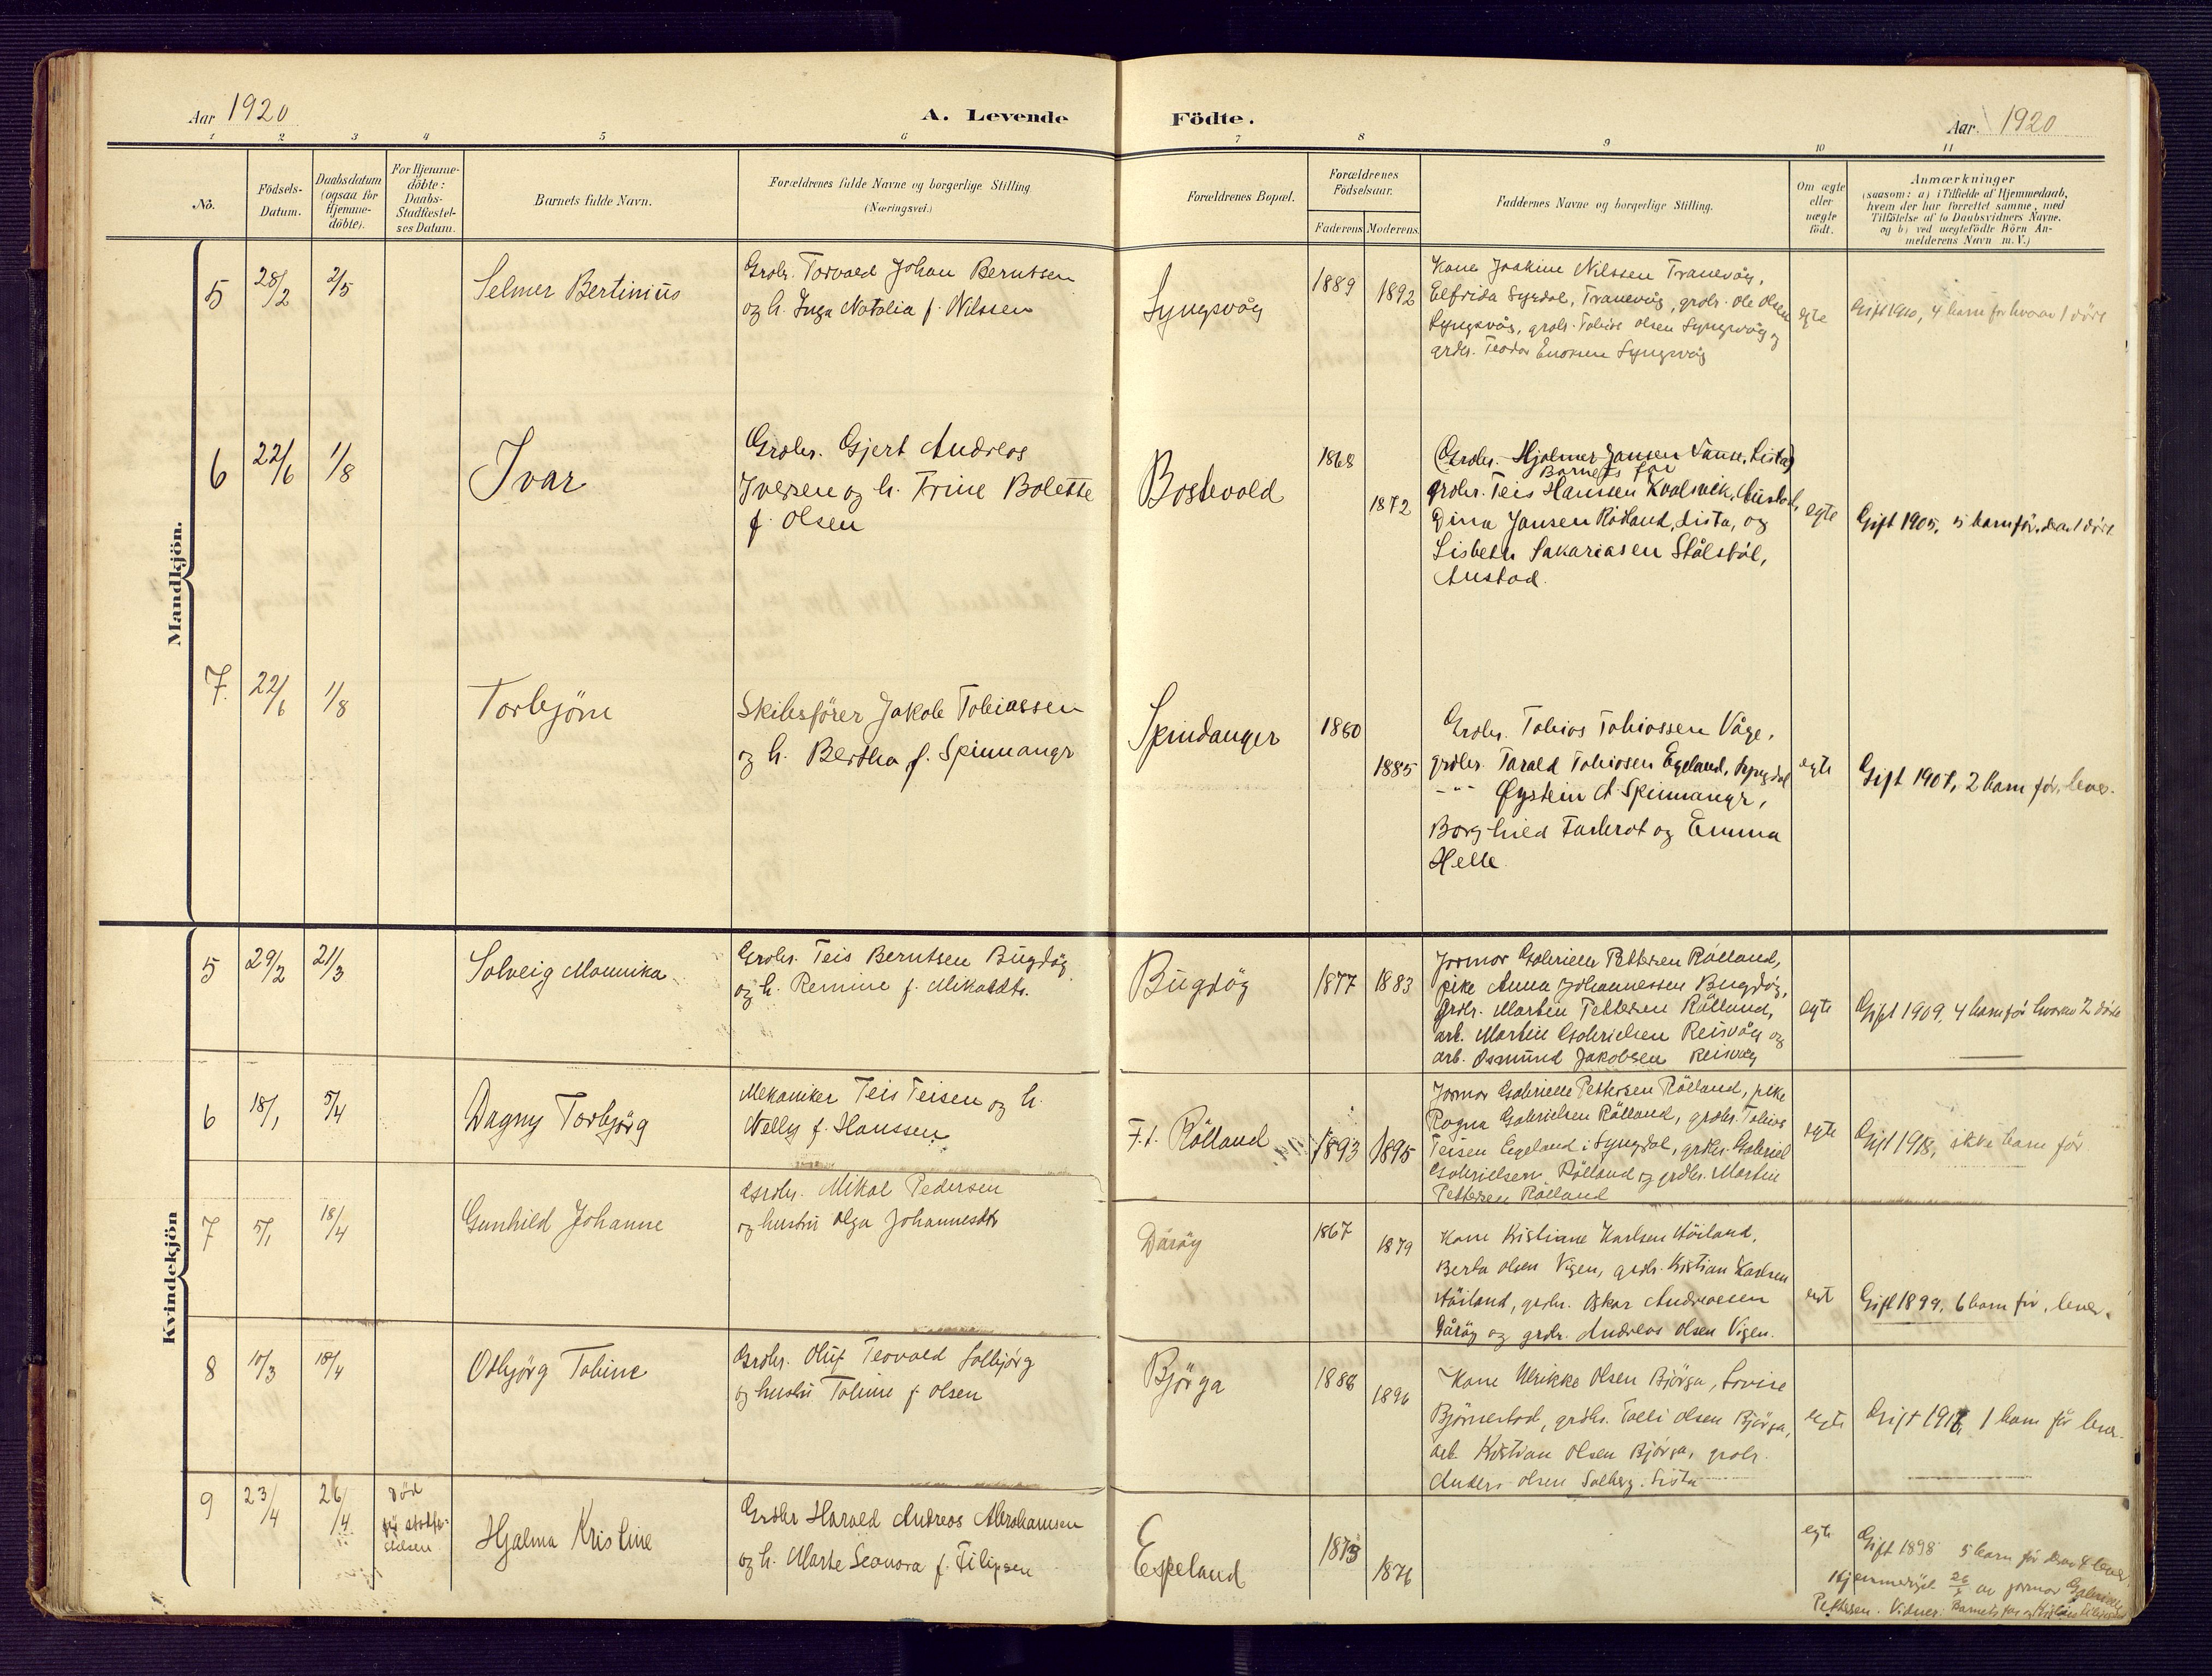 Aar 1920
A. Levende Födte.
Aar 1920
1 2 3 4 5 6 7 8 9 10 11
No.
Födsels-Datum.
Daabsdatum (ogsaa for Hjemme-döbte).
For Hjemme-döbte: Daabs-Stadfæstel-ses Datum.
Barnets fulde Navn.
Forældrenes fulde Navne og borgerlige Stilling (Næringsvei.)
Forældrenes Bopæl.
Forældrenes Födselsaar.
Faderens Moderens.
Faddernes Navne og borgerlige Stilling.
Om ægte eller uægte födt.
Anmærkninger
(saasom: a) i Tilfælde af Hjemmedaab,
hvem der har forrettet samme, med
Tilföielse af to Daabsvidners Navne,
og b) ved uægtefödte Börn An-
melderens Navn m. V.)
Mandkjön.
5 28/2 2/5 Selmer Bertinius
Grdbr. Torvald Johan Berntsen
og h. Inga Natalia f. Nilssen
Lyngsvåg 1889 1892
Kone Joakine Nilssen Tranevåg,
Elfrida Lyngdal, Tranevåg, grdbr. Ole Olsen
Lyngsvåg, grdbr. Tobias Olsen Lyngsvåg og
grdbr. Teodor Enoksen Lyngsvåg
egte
Gift 1910, 4 barn før hvorav 1 død
6 22/6 1/8 Ivar
Grdbr. Gjert Andreas
Iversen og h. Trine Bolette
f. Olsen
Bostevold 1868 1872
(Grdbr. Hjalmer Jansen Vanse, Lista)
Barnets far
grdbr. Teis Hanssen Kvalsvik, Austad,
Dina Jansen Rødland, Lista, og
Lisbeth Sakariasen Stålsbøl,
Austad.
egte
Gift 1905, 5 barn før, derav 1 død
7. 22/6 1/8 Torbjørn
Skibsfører Jakob Tobiassen
og h. Bertha f. Spinnangr
Spindanger 1880 1885
Grdbr. Tobias Tobiassen Våge,
grdbr. Tarald Tobiasen Egeland, Lyngdal
-"- Øystein A. Spinnangr,
Borghild Tarberot og Emma
Helle.
egte
Gift 1907, 2 barn før, lever.
Kvindekjön
5 29/2 21/3 Solveig Monnika
Grdbr. Teis Berntsen Bugdøg
og h. Remine f. Mikalsdtr.
Bugdøg 1877 1883
Jormor Gabrielle Pettersen Rålland,
pike Anna Johannessen Bugdøg,
Grdbr. Martin Pettersen Rålland,
arb. Martin Gabrielsen Reisvåg og
arb. Osmund Jakobsen Reisvåg
egte
Gift 1909, 4 barn før hvorav 2 døde
6 18/1 5/4 Dagny Torbjørg
Mekaniker Teis Teisen og h.
Nelly f. Hanssen
F.t. Rålland 1893 1895
Jormor Gabrielle Pettersen Rålland, pike
Ragna Gabrielsen Rålland, grdbr. Tobias
Teisen Egeland i Lyngdal, grdbr. Gabriel
Gabrielsen Rålland og grdbr. Martin
Pettersen Rålland
egte
Gift 1918, ikke barn før
7 5/1 18/4 Gunhild Johanne
Grdbr. Mikal Pedersen
og hustru Olga Johannesdtr
Dårøy 1867 1879
Kone Kristiane Karlsen Høiland,
Berta Olsen Vigen, grdbr. Kristian Karlsen
Høiland, grdbr. Oskar Andreassen
Dårøy og grdbr. Andreas Olsen Vigen.
egt
Gift 1899, 6 barn før, lever.
8 10/3 18/4 Otbjørg Tobine
Grdbr. Oluf Teovald Solbjørg
og hustru Tobine f. Olsen
Bjørga 1888 1896
Kone Ulrikke Olsen Bjørga, Lovise
Bjørnestad, grdbr. Tolli Olsen Bjørga,
arb. Kristian Olsen Bjørga, grdbr.
Anders Olsen Solberg, Lista
egte
Gift 1918, 1 barn før lever.
9 23/4 26/4 Død før stadfestelsen
Hjalma Kristine
Grdbr Harald Andreas Abrahamsen
og h. Marte Leonora f. Filipsen
Espeland 1873 1876
egte
Gift 1898 5 barn før derav 4 lever.
Hjemmedøpt 26/4 av jormor Gabrielle
Pettersen. Vidner: Barnets far og